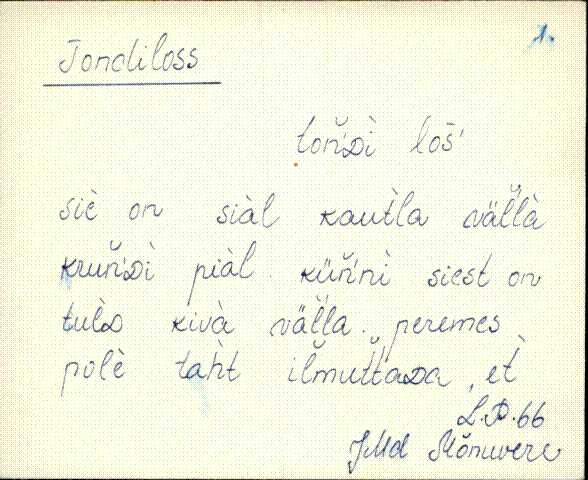 Tondiloss
1.
toň'Dì loš'
siè on siàl kautla väľľà
kruň'Dì piàl. küň'nì siest on
tulD kivà väľľa. peremes
polè taht iľmuťťaDa, et
L.P. 66
JMd Mõnuvere